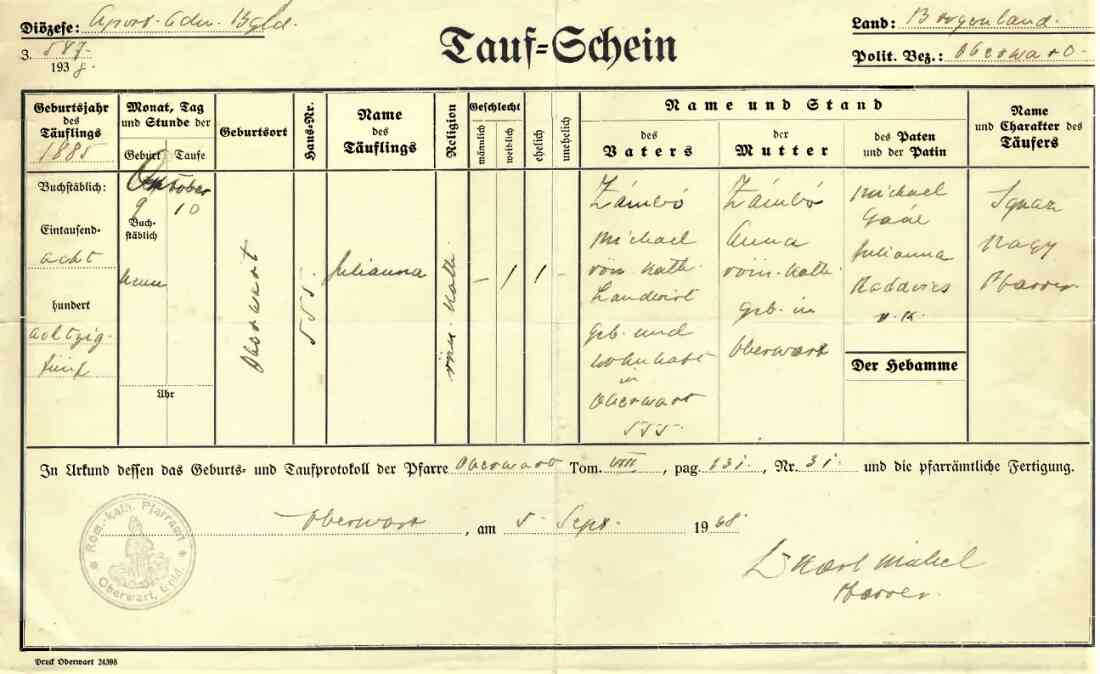 Diözese: Apost. Adm. Bgld.
Z. 587.
1938.
Tauf=Schein
Land: Burgenland.
Polit. Bez.: Oberwart.
Geburtsjahr des Täuflings 1885
Monat, Tag und Stunde der
Geburt Taufe
Geburtsort
Haus-Nr.
Name des Täuflings
Religion
Geschlecht
männlich
weiblich
ehelich
unehelich
Name und Stand
des Vaters
der Mutter
des Paten und der Patin
Name und Charakter des Täufers
Buchstäblich:
Eintausend-
acht
hundert
achtzig-
fünf
Oktober
9 10
Buch-
stäblich
neun
Uhr
Oberwart
555.
Julianna
röm.-kath.
– 1 1
Zámbó
Michael
röm. kath.
Landwirt
geb. und
wohnhaft
in
Oberwart
555.
Zámbó
Anna
röm. kath.
geb. in
Oberwart
Michael
Gaál
Julianna
r. k.
Der Hebamme
Ignaz
Nagy
Pfarrer
In Urkund dessen das Geburts- und Taufprotokoll der Pfarre Oberwart Tom. VIII, pag. 131., Nr. 31. und die pfarrämtliche Fertigung.
Oberwart, am 5. Sept. 19
Röm.-kath. Pfarramt
Oberwart, Bgld.
Karl
Pfarrer.
Druck Oberwart 24398